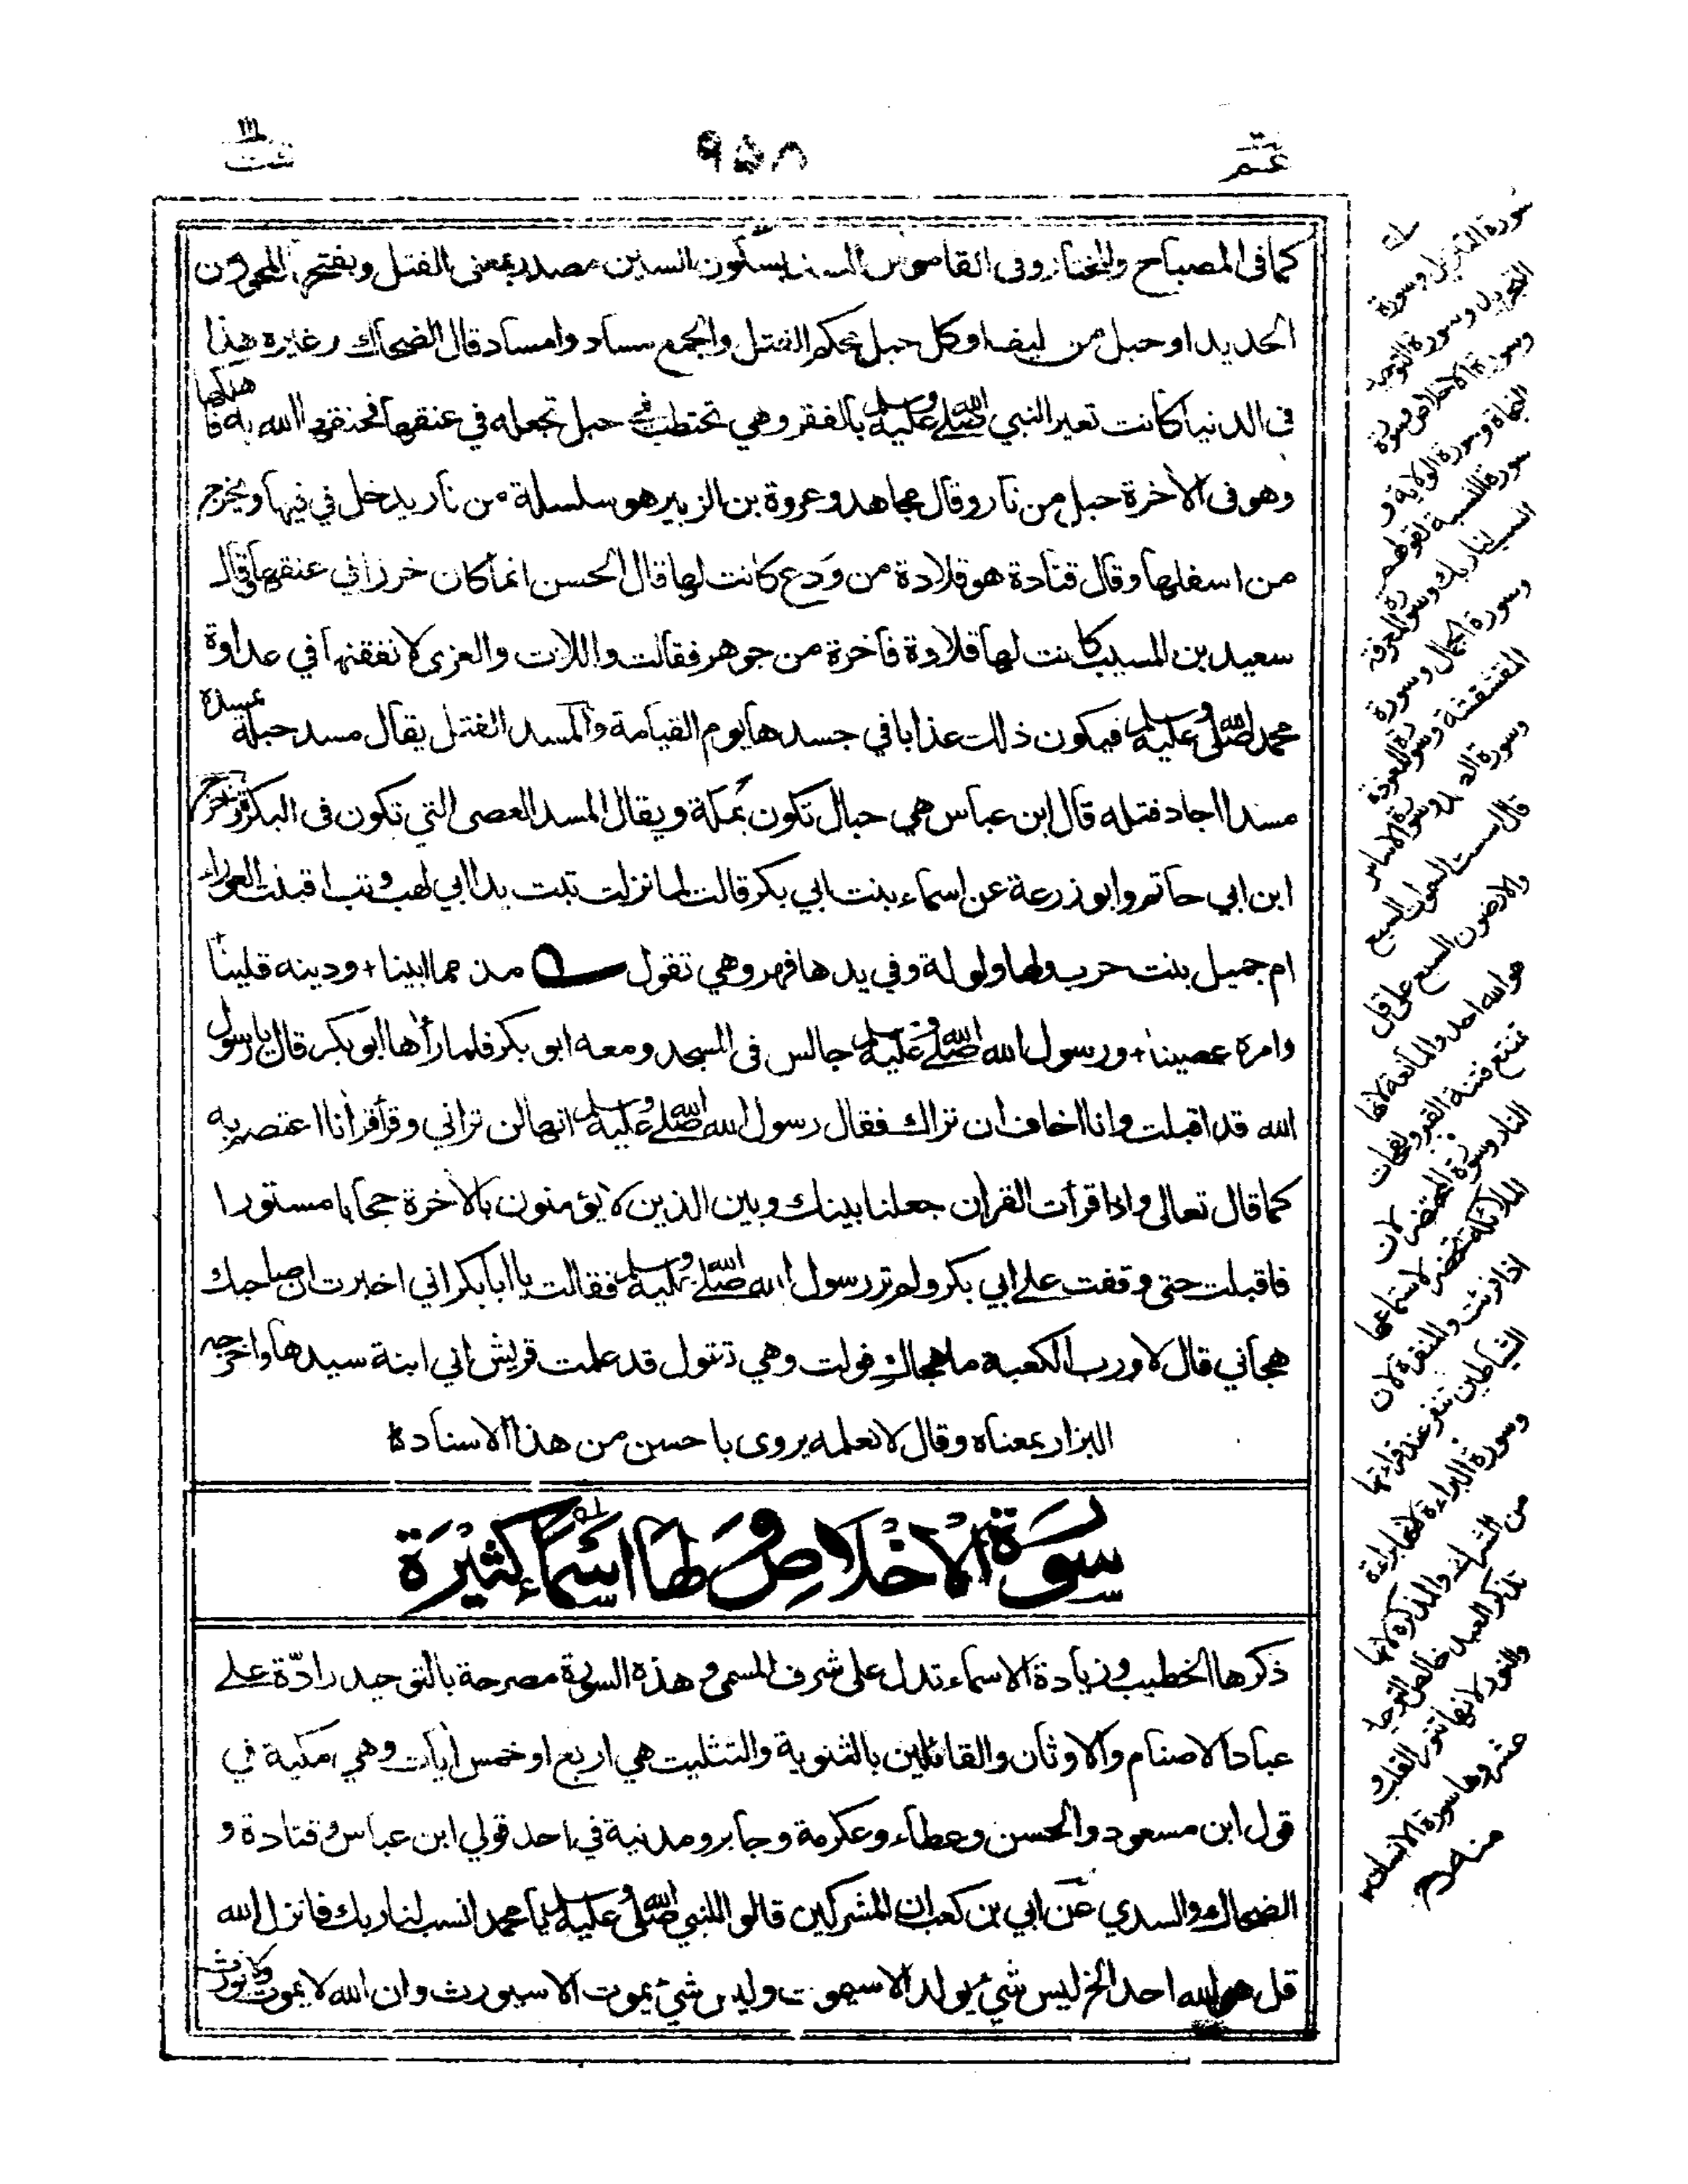 عم
٩٥٨
تبت
كما فى المصباح والمختار وفى القاموس المسد بسكون السين مصدر بمعنى الفتل وبفتحها المحور من
الحديد او حبل من ليف او كل حبل محكم الفتل والجمع مساد وامساد قال الضحاك وغيره هذا
فى الدنيا كانت تعير النبي صلى الله عليه وسلم بالفقر وهي تحتطب في حبل تجعله في عنقها فخنقها الله به فاهلكها
وهو فى الأخرة حبل من نار وقال مجاهد وعروة بن الزبير هو سلسلة من نار يدخل في فيها ويخرج
من اسفلها وقال قتادة هو قلادة من ودع كانت لها قال الحسن انما كان خرزا في عنقها قال
سعيد بن المسيب كانت لها قلادة فاخرة من جوهر فقالت واللات والعزى لانفقنها في عداوة
محمد صلى الله عليه وسلم فيكون ذلك عذابا في جسدها يوم القيامة والمسد الفتل يقال مسد حبله يمسده
مسدا اجاد فتله قال ابن عباس هي حبال تكون بمكة ويقال المسد العصى التي تكون فى البكرة واخرج
ابن ابي حاتم وابو زرعة عن اسماء بنت ابي بكر قالت لما نزلت تبت يدا ابي لهب وتب اقبلت العوراء
ام جميل بنت حرب ولها ولولة وفي يدها فهر وهي تقول مذمما ابينا + ودينه قلينا +
وامره عصينا + ورسول الله صلى الله عليه وسلم جالس فى المسجد ومعه ابو بكر فلما رأها ابو بكر قال يا رسول
الله قد اقبلت وانا اخاف ان تراك فقال رسول الله صلى الله عليه وسلم انها لن تراني وقرأ قرأنا اعتصم به
كما قال تعالى واذا قرأت القرأن جعلنا بينك وبين الذين لا يؤمنون بالأخرة حجابا مستورا
فاقبلت حتى وقفت على ابي بكر ولم تر رسول الله صلى الله عليه وسلم فقالت يا ابا بكر اني اخبرت ان صاحبك
هجاني قال لا ورب الكعبة ما هجاك فولت وهي تقول قد علمت قريش اني ابنة سيدها واخرجه
البزار بمعناه وقال لا نعلمه يروى باحسن من هذا الاسناد ة
سورة الاخلاص ولها اسماء كثيرة
ذكرها الخطيب وزيادة الاسماء تدل على شرف المسمى وهذه السورة مصرحة بالتوحيد رادّة على
عباد الاصنام والاوثان والقائلين بالثنوية والتثليث هي اربع او خمس أيات وهي مكية في
قول ابن مسعود والحسن وعطاء وعكرمة وجابر ومدنية في احد قولي ابن عباس وقتادة و
الضحاك والسدي عن ابي بن كعب ان المشركين قالوا للنبي صلى الله عليه وسلم يا محمد انسب لنا ربك فانزل الله
قل هو الله احد الخ ليس شيء يولد الا سيموت وليس شيء يموت الا سيورث وان الله لا يموت ولا يورث
سورة التفريد وسورة
التجريد وسورة التوحيد
وسورة الاخلاص وسورة
النجاة وسورة الولاية و
سورة النسبة لقولهم
انسب لنا ربك وسورة المعرفة
وسورة الجمال وسورة
المقشقشة وسورة المعوذة
وسورة الصمد وسورة الاساس
قال اسست السموات السبع
والارضون السبع على قل
هو الله احد والمانعة لانها
تمنع فتنة القبر ونفحات
النار وسورة المحتضر لان
الملائكة تحضر لاستماعها
اذا قرئت والمنفرة لان
الشياطين تنفر عند قراءتها
وسورة البراءة لانها براءة
من الشرك والمذكرة لانها
تذكر العبد خالص التوحيد
والنور لانها تنور القلب و
عشروها سورة الانسان
منه رح